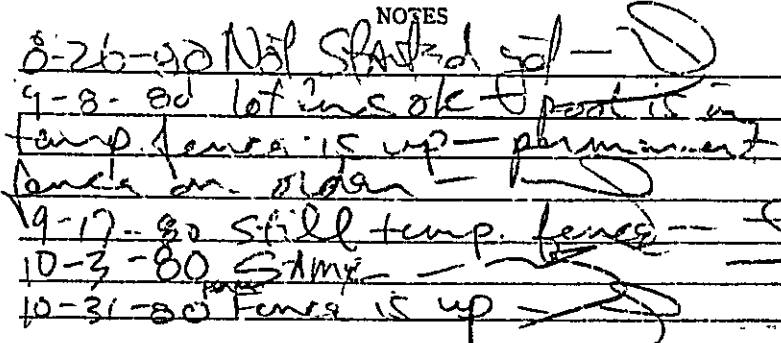 NOTES
8-26-80 Not Started yet —
9-8-80 lot lines ok — pool is in
temp. fence is up — permanent
fence on order —
9-17-80 still temp. fence —
10-3-80 Same —
10-31-80 Fence is up —